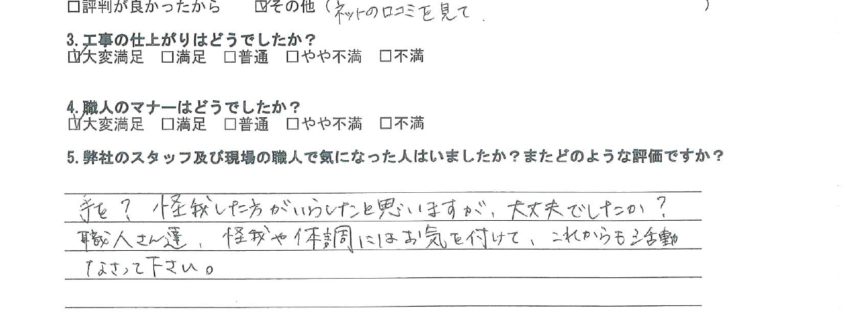 □評判が良かったから ☑その他（ネットの口コミを見て． ）
3.工事の仕上がりはどうでしたか？
☑大変満足 □満足 □普通 □やや不満 □不満
4.職人のマナーはどうでしたか？
☑大変満足 □満足 □普通 □やや不満 □不満
5.弊社のスタッフ及び現場の職人で気になった人はいましたか？またどのような評価ですか？
手を？ 怪我した方がいらしたと思いますが、大丈夫でしたか？
職人さん達、怪我や体調にはお気を付けて、これからも活動
なさって下さい。